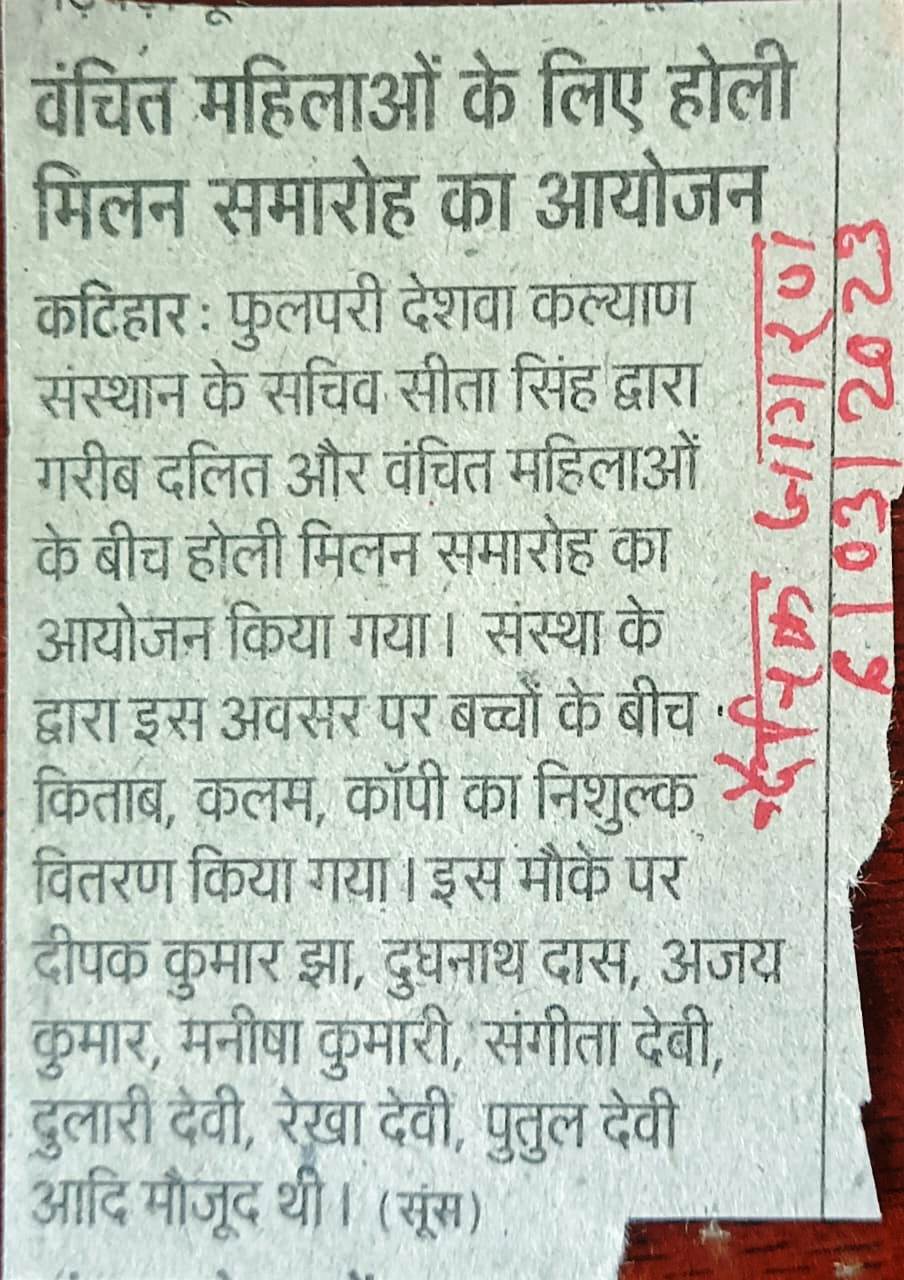 वंचित महिलाओं के लिए होली
मिलन समारोह का आयोजन
कटिहार : फुलपरी देशवा कल्याण
संस्थान के सचिव सीता सिंह द्वारा
गरीब दलित और वंचित महिलाओं
के बीच होली मिलन समारोह का
आयोजन किया गया। संस्था के
द्वारा इस अवसर पर बच्चों के बीच
किताब, कलम, कॉपी का निशुल्क
वितरण किया गया। इस मौके पर
दीपक कुमार झा, दुघनाथ दास, अजय
कुमार, मनीषा कुमारी, संगीता देवी,
दुलारी देवी, रेखा देवी, पुतुल देवी
आदि मौजूद थी। (सूंस)
दैनिक जागरण
6|03|2023